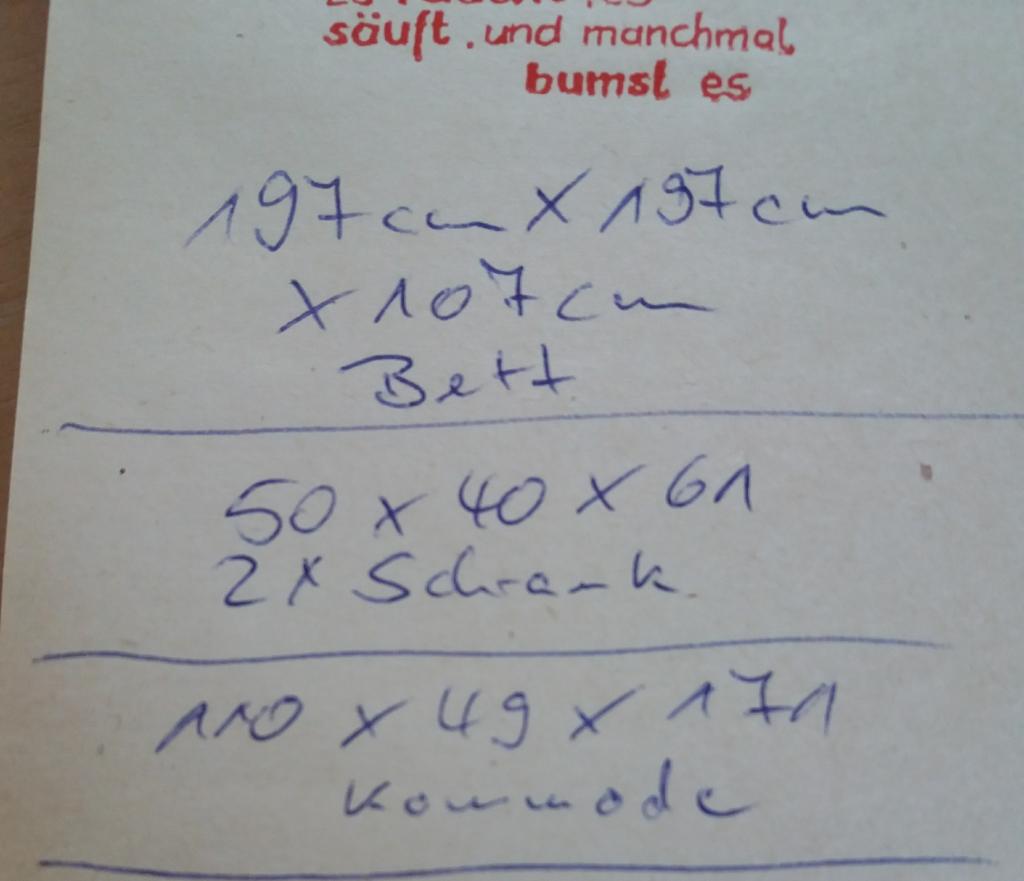 säuft. und manchmal
bumst es
197cm x 197cm
x 107cm
Bett
50 x 40 x 61
2x Schrank
110 x 49 x 171
Kommode